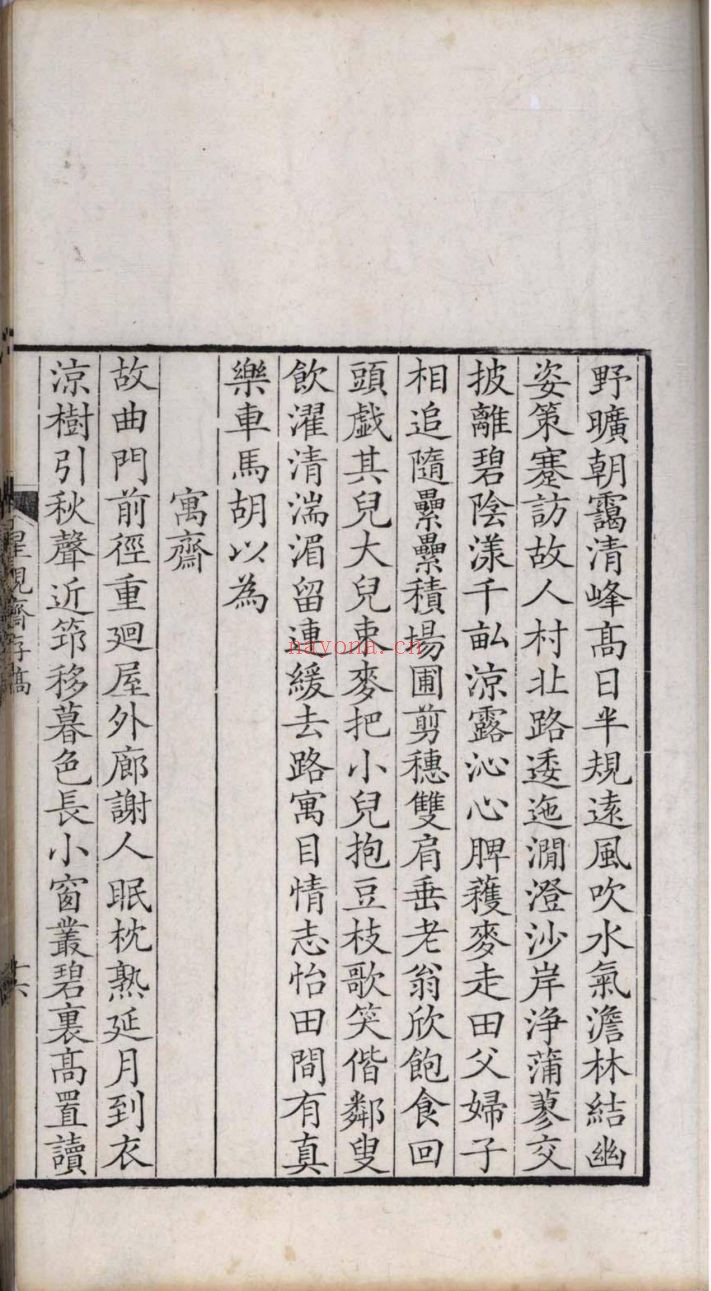 野曠朝靄清峰髙日半規遠風吹水氣澹林結幽
姿策蹇訪故人村北路逶迤澗澄沙岸浄蒲蓼交
披離碧陰漾千畆涼露沁心脾穫麥走田父婦子
相追隨纍纍積場圃剪穗雙肩垂老翁欣飽食回
頭戯其兒大兒束麥把小兒抱豆枝歌笑偕鄰叟
飲濯清湍湄留連緩去路寓目情志怡田間有真
樂車馬胡以為
寓齋
故曲門前徑重廻屋外廊謝人眠枕熟延月到衣
涼樹引秋聲近筇移暮色長小窗叢碧裏髙置讀
齋存稾
十六
nayona.cn